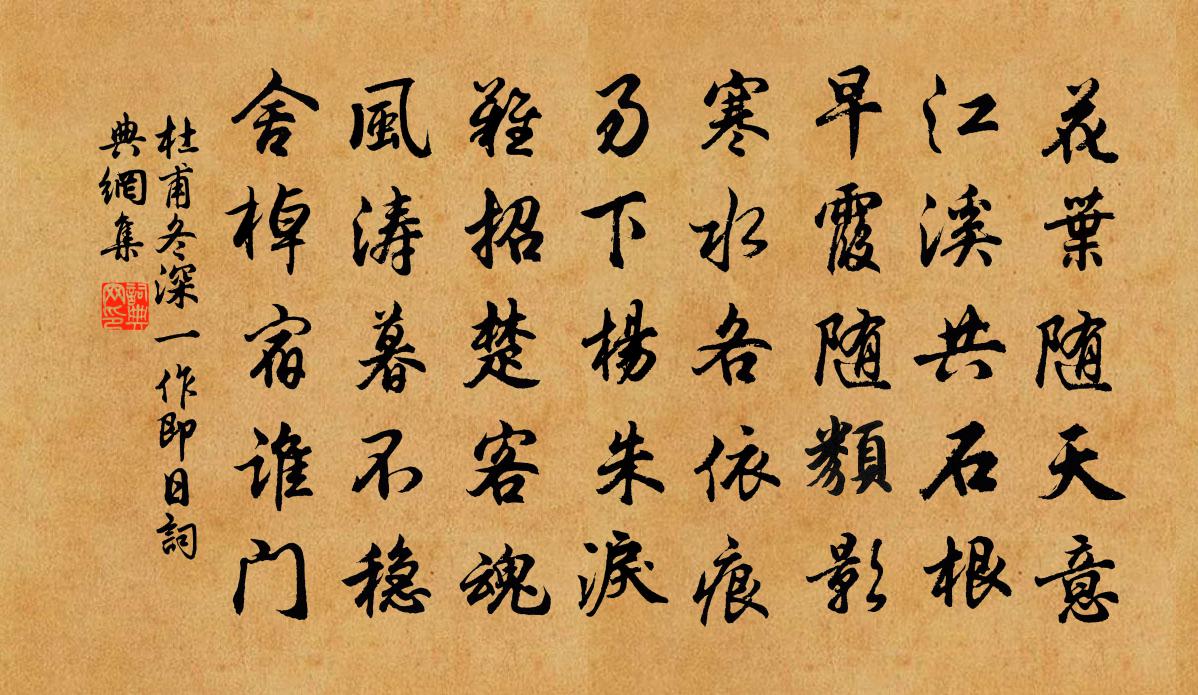 花葉随天意
江溪共石根
早霞随類影
寒水各依痕
易下楊朱淚
難招楚客魂
風涛暮不穏
舍棹宿谁门
杜甫冬深一作即日詞
典網集
詞典網印